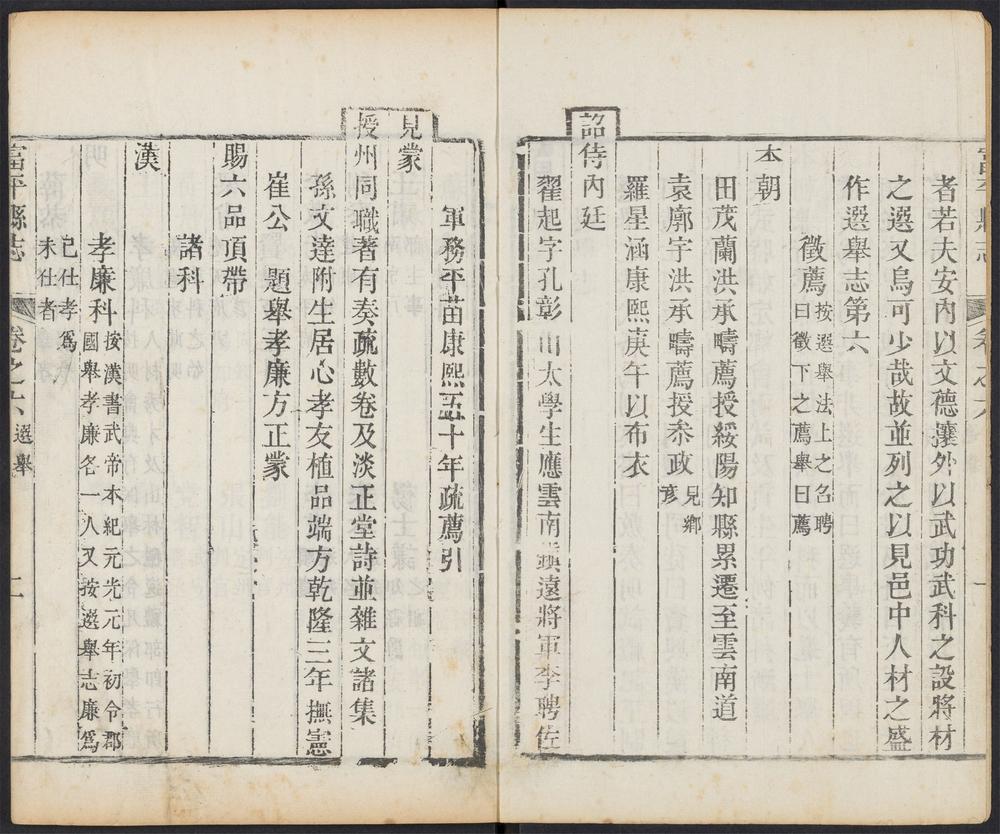 者若夫安內以文德攘外以武功武科之設將材
之選又烏可少哉故並列之以見邑中人材之盛
作選舉志第六
徵薦 按選舉法上之名聘
曰徵下之薦舉曰薦
本朝
田茂蘭洪承疇薦授綏陽知縣累遷至雲南道
袁廓宇洪承疇薦授叅政 見鄉
彥
羅星涵康熙庚午以布衣
詔侍內廷
翟起字孔彰山太學生應雲南鎮遠將軍李聘佐
軍務平苗康熙五十年疏薦引
見蒙
授州同職著有奏疏數卷及淡正堂詩並雜文諸集
孫文達附生居心孝友植品端方乾隆三年撫憲
崔公 題舉孝廉方正蒙
賜六品頂帶
諸科
漢
孝廉科 按漢書武帝本紀元光元年初令郡
國舉孝廉各一人又按選舉志廉爲
已仕孝爲
未仕者
富平縣志 卷之六 選舉 二